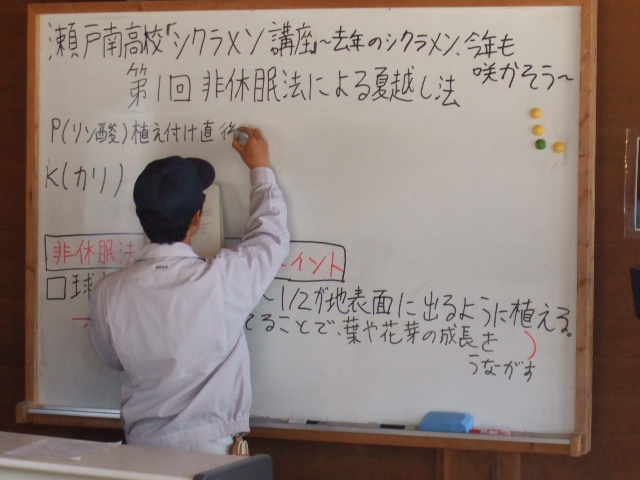 瀬戸南高校「シクラメン講座」～去年のシクラメン、今年も
咲かそう～
第1回 非休眠法による夏越し法
P(リン酸)植え付け直後
K(カリ)
非休眠法 イント
□球 ～1/2が地表面に出るように植える。
→ てることで、葉や花芽の成長を
うながす